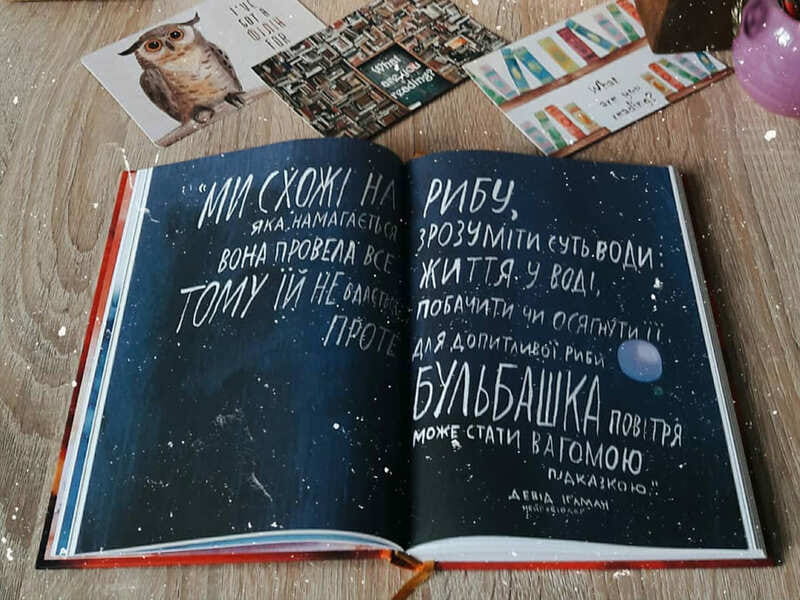 I'VE
GOT A
FILIN
FOR
What
are you
reading?
What
are you
reading?
"МИ СХОЖІ НА РИБУ,
ЯКА НАМАГАЄТЬСЯ ЗРОЗУМІТИ СУТЬ ВОДИ:
ВОНА ПРОВЕЛА ВСЕ ЖИТТЯ У ВОДІ,
ТОМУ ЇЙ НЕ ВДАЄТЬСЯ ПОБАЧИТИ ЧИ ОСЯГНУТИ ЇЇ
ПРОТЕ ДЛЯ ДОПИТЛИВОЇ РИБИ
БУЛЬБАШКА ПОВІТРЯ
МОЖЕ СТАТИ ВАГОМОЮ
ПІДКАЗКОЮ."
ДЕВІД ІҐЛМАН
НЕЙРОБІОЛОГ